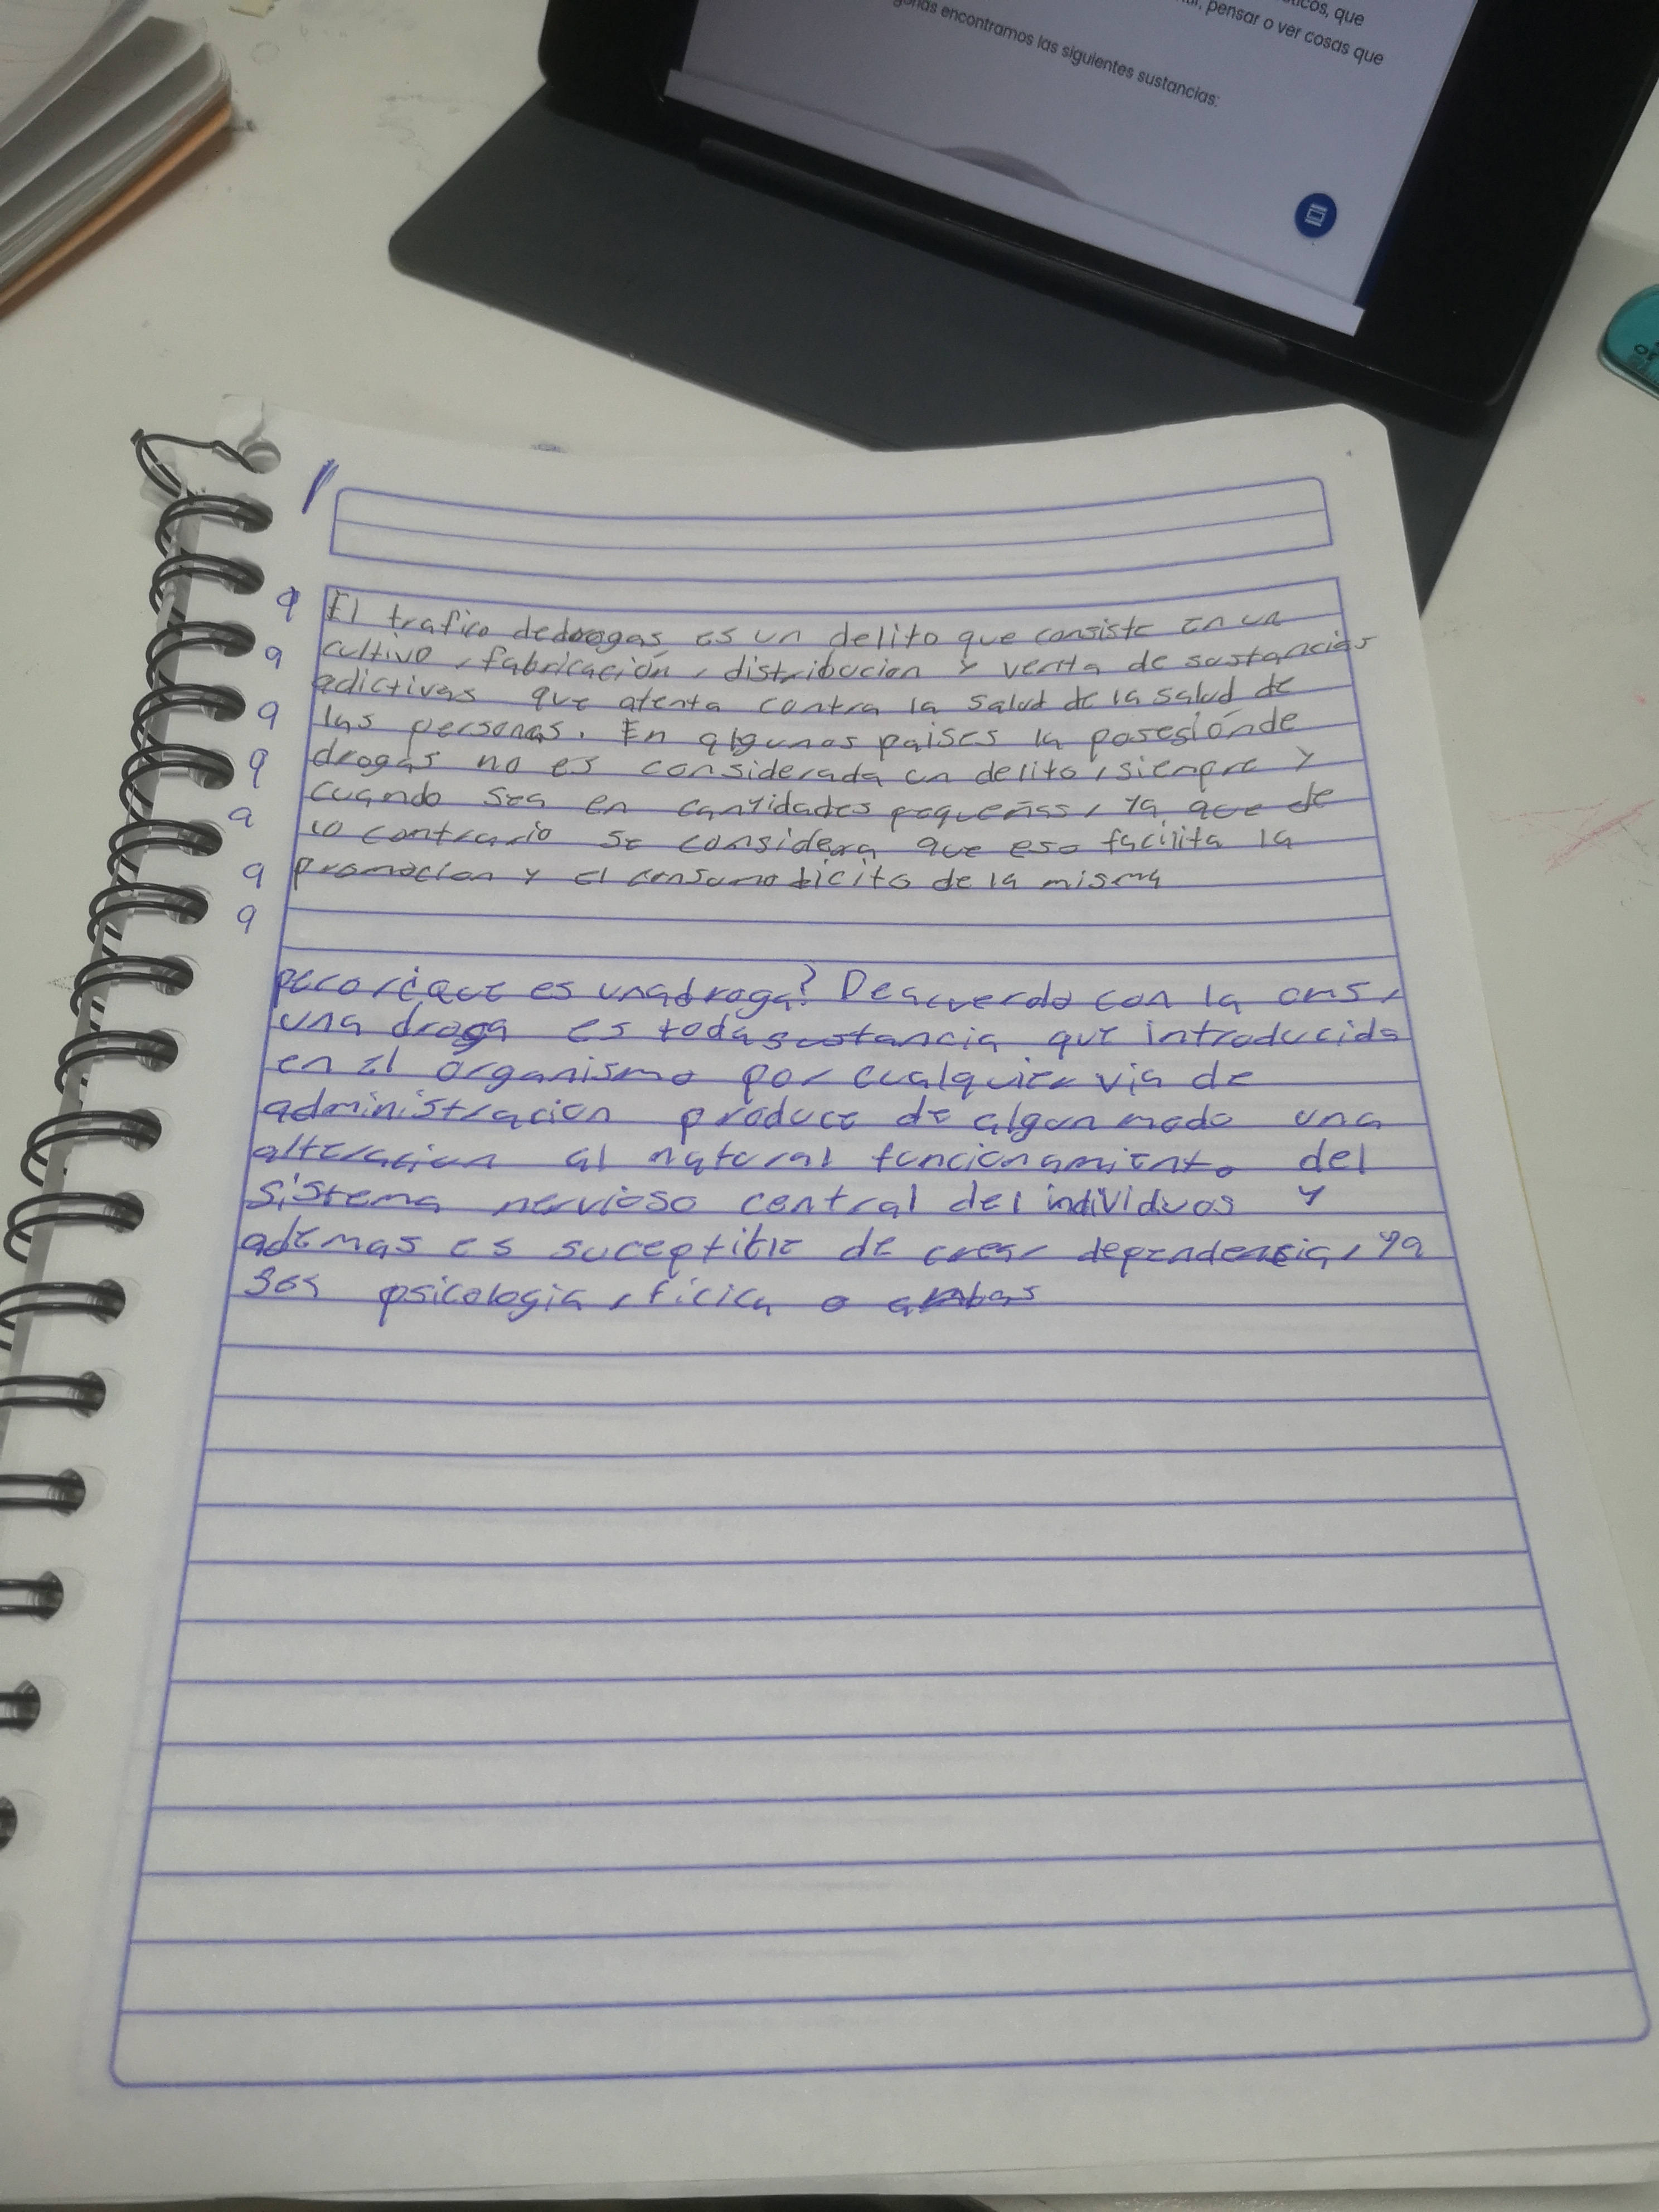 ticos, que
ntir, pensar o ver cosas que
gorías encontramos las siguientes sustancias:
El trafico dedrogas es un delito que consiste en un
cultivo, fabricación, distribucion y venta de sustancias
adictivas que atenta contra la salud de la salud de
las personas. En algunos paises la posesiónde
drogas no es considerada un delito, siempre y
cuando sea en cantidades pequeñas, ya que de
lo contrario se considera que eso facilita la
promocion y el consumo licito de la misma
pero, ¿que es unadroga? Deacuerdo con la oms,
una droga es toda sustancia que introducida
en el organismo por cualquier via de
administracion produce de algun modo una
alteracion al natural funcionamiento del
sistema nervioso central del individuos y
ademas es suceptible de crear dependencia, ya
sea psicologia, ficica o ambas
a
a
a
a
a
a
a